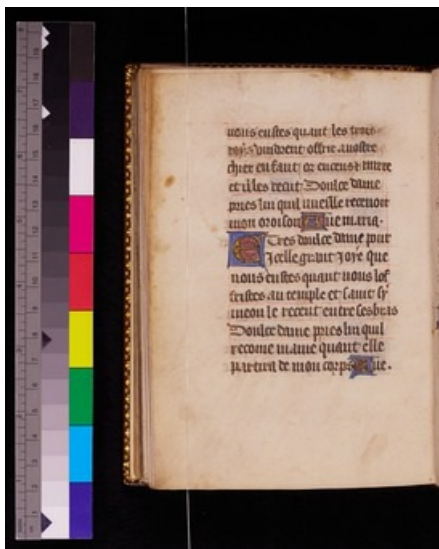 vous eustes quant les trois
roys vindrent offrir a vostre
chier enfant or encens & mirre
et il les recut Doulce dame
pries lui quil vueille recevoir
mon oroison Ave maria.
E Tres doulce dame pour
ycelle grant joye que
vous eustes quant vous lof
fristes au temple et saint sy
meon le recent entre ses bras
Doulce dame pries lui quil
recoive mame quant elle
partira de mon corps Ave.